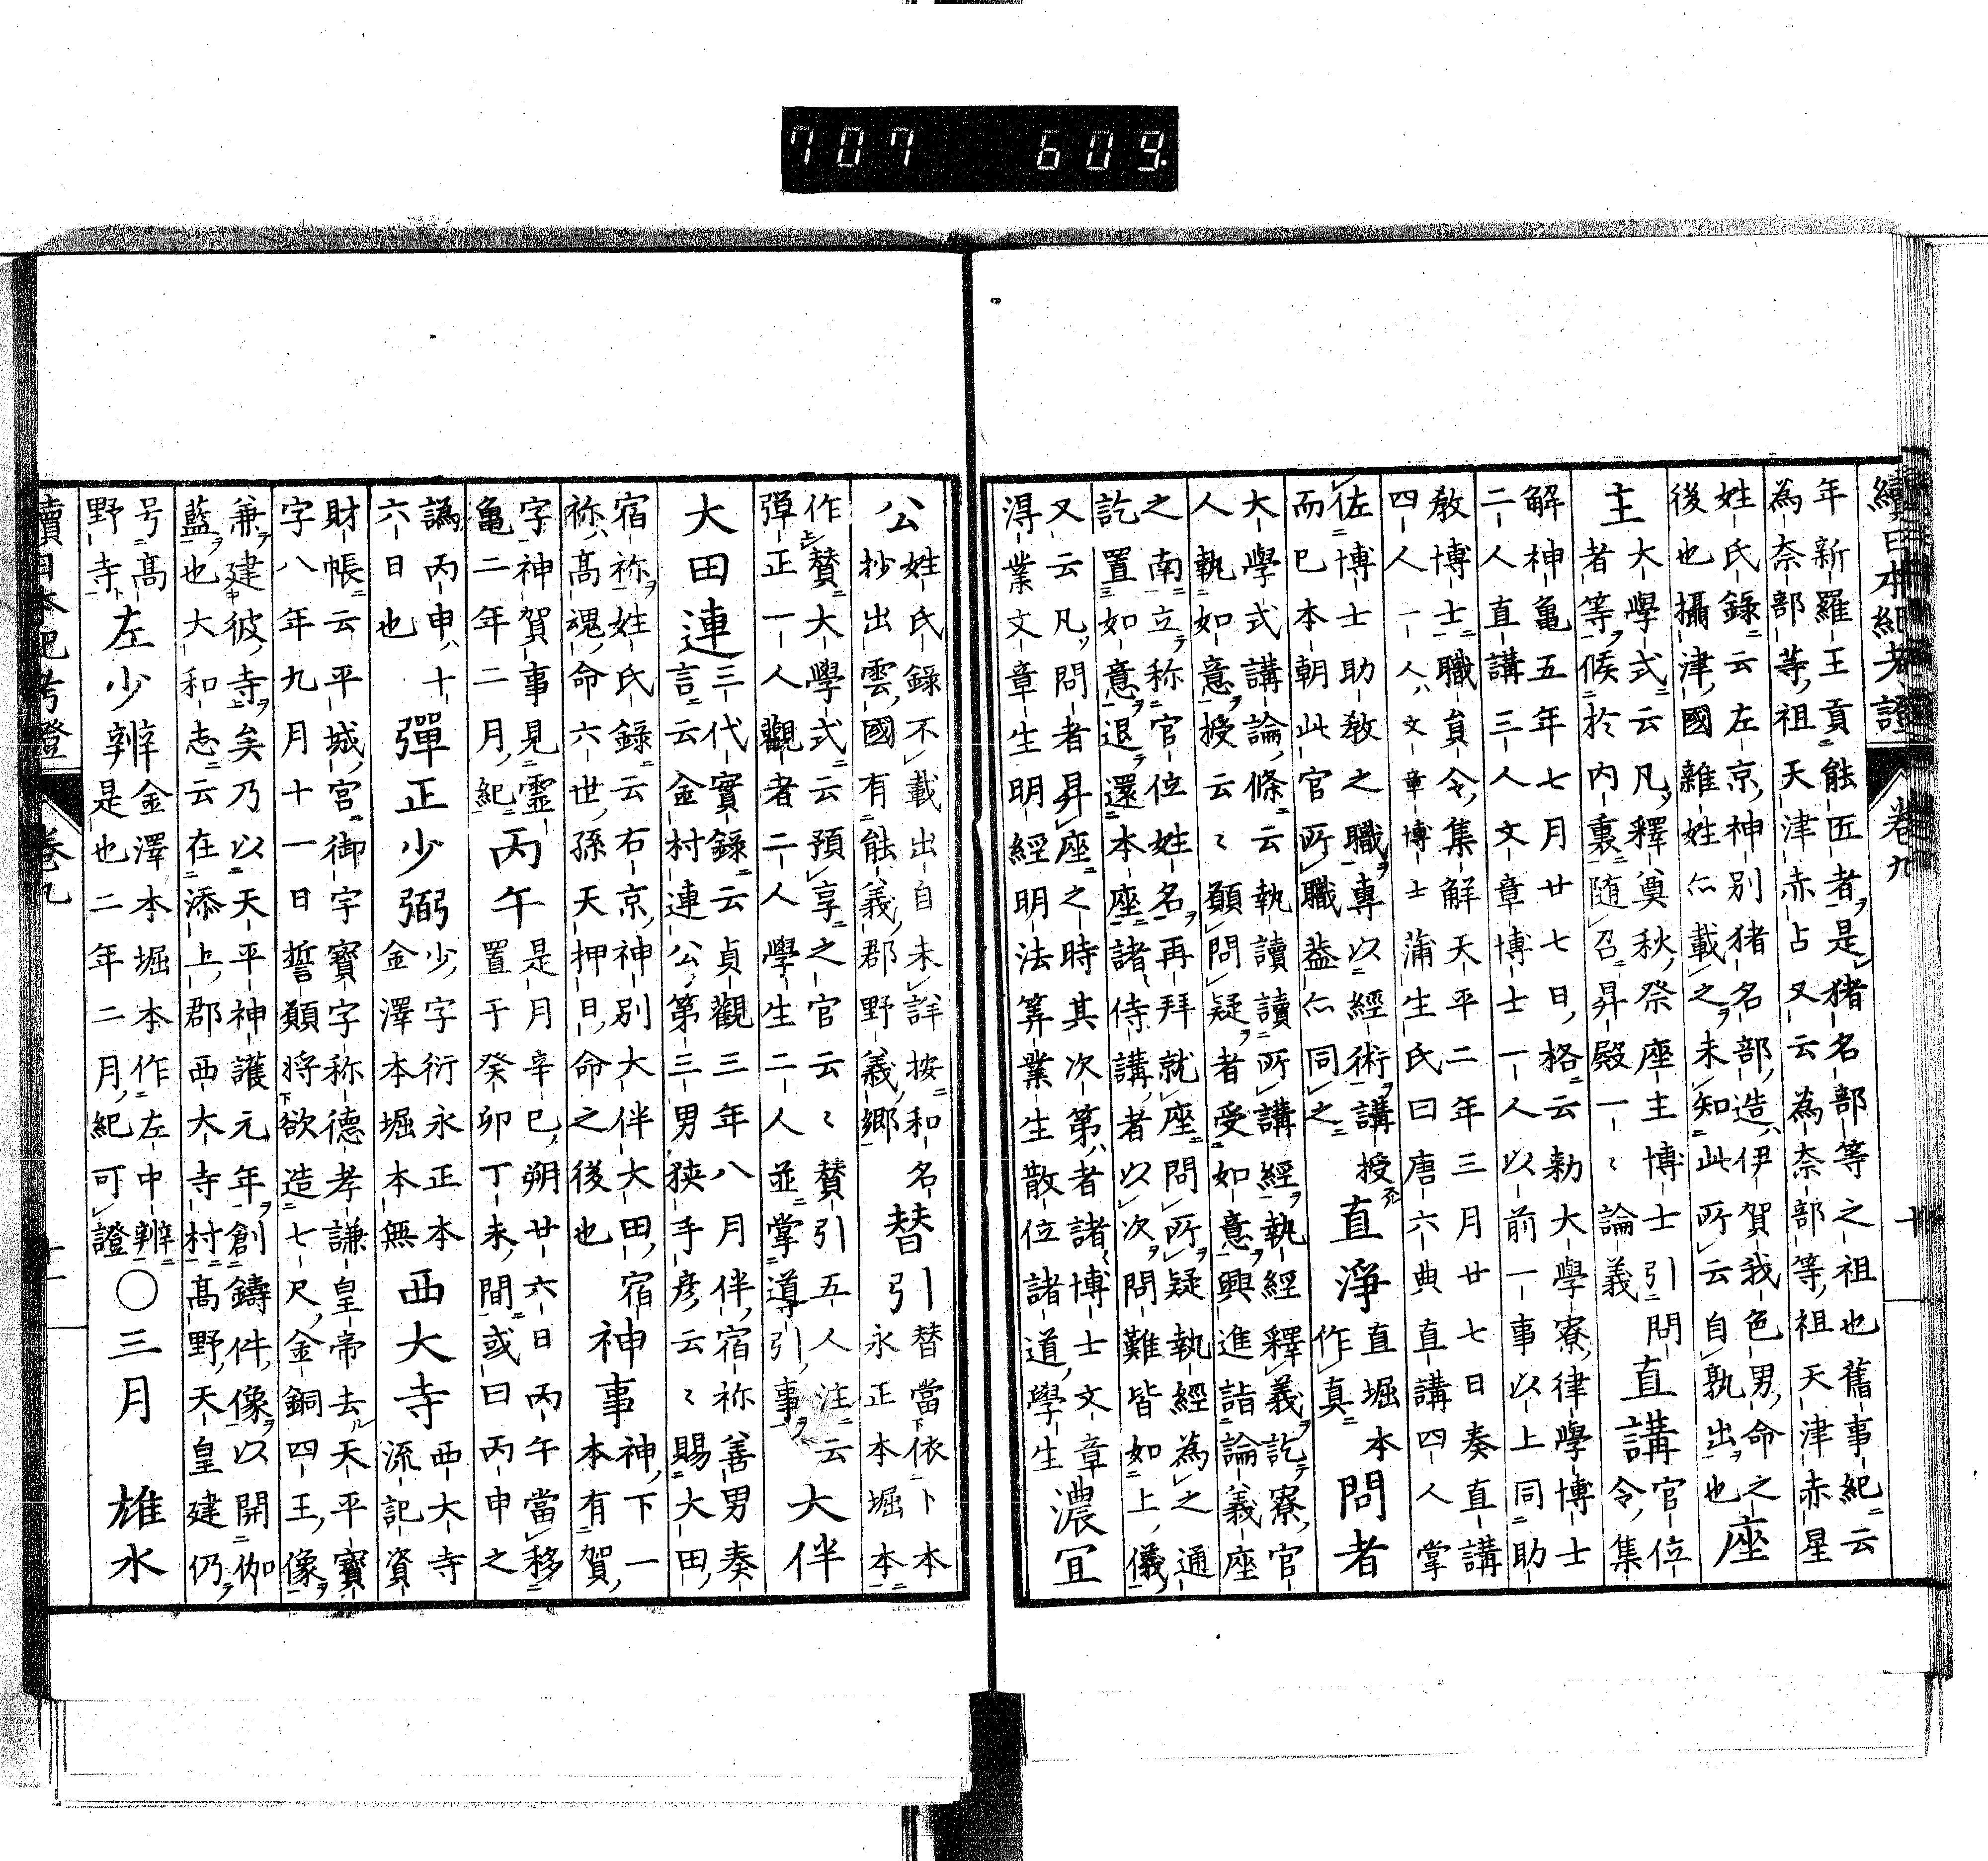 707 609.
續日本紀考證 卷九 十
年新羅王貢能匠者是猪名部等之祖也舊事紀云
為奈部等祖天津赤占又云為奈部等祖天津赤星
姓氏錄云左京神別猪名部造伊賀我色男命之
後也攝津國雜姓亦載之未知此所云自孰出也
座
主
大學式云凡釋奠秋祭座主博士引問
者等候於內裏随召昇殿一〻論義
直講
官位
令集
解神亀五年七月廿七日格云勅大學寮律學博士
二人直講三人文章博士一人以前一事以上同助
教博士職員令集解天平二年三月廿七日奏直講
四人一人文章博士蒲生氏曰唐六典直講四人掌
佐博士助教之職專以經術講授
而已本朝此官所職蓋亦同之
直淨
直堀本
作真
問者
大學式講論條云執讀讀所講經執經釋義訖寮官
人執如意授云〻願問疑者受如意興進詣論義座
之南立称官位姓名再拜就座問所疑執經為之通
訖置如意退還本座諸侍講者以次問難皆如上儀
又云凡問者昇座之時其次第者諸博士文章
得業文章生明經明法筭業生散位諸道學生
濃宜
公
姓氏錄不載出自未詳按和名
抄出雲國有能義郡野義鄉
替引
替當依卜本
永正本堀本
作賛大學式云預享之官云〻賛引五人注云
彈正一人觀者二人學生二人並掌導引事
大伴
大田連
三代實錄云貞觀三年八月伴宿祢善男奏
言云金村連公第三男狹手彦云〻賜大田
宿祢姓氏錄云右京神別大伴大田宿
祢高魂命六世孫天押日命之後也
神事
神下一
本有賀
字神賀事見靈
亀二年二月紀
丙午
是月辛巳朔廿六日丙午當移
置于癸卯丁未間或曰丙申之
譌丙申十
六日也
彈正少弼
少字衍永正本
金澤本堀本無
西大寺
西大寺
流記資
財帳云平城宮御宇寶字称德孝謙皇帝去天平寶
字八年九月十一日誓願將欲造七尺金銅四王像
兼建彼寺矣乃以天平神護元年創鑄件像以開伽
藍也大和志云在添上郡西大寺村高野天皇建仍
号高
野寺
左少辨
金澤本堀本作左中辨
是也二年二月紀可證
○三月 雄水
續日本紀考證 卷九 十一